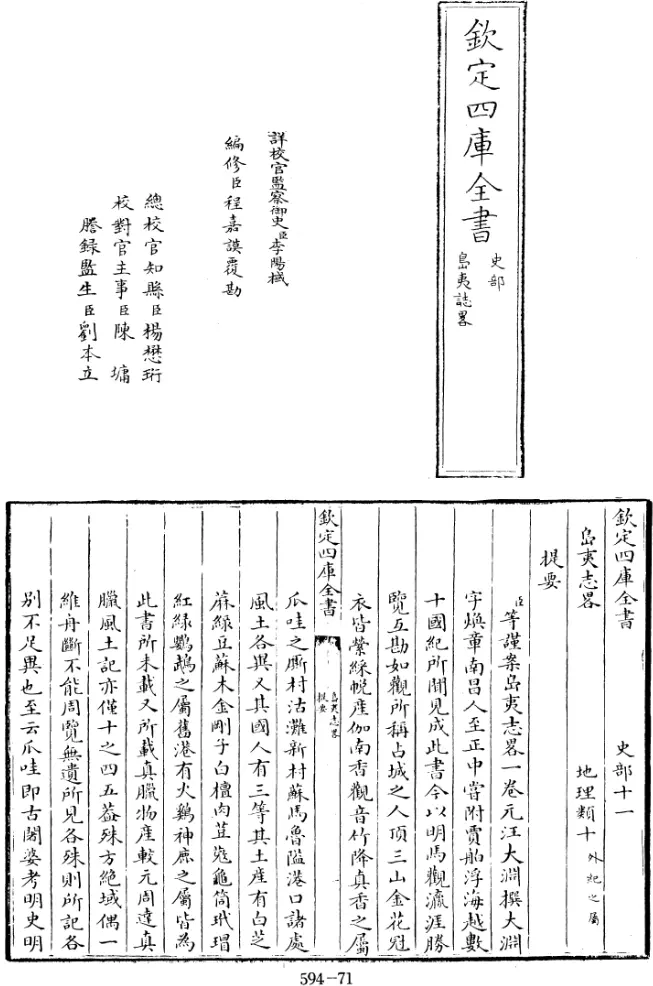 欽定四庫全書
史部
島夷誌畧
詳校官監察御史臣李陽棫
編修臣程嘉謨覆勘
總校官知縣臣楊懋珩
校對官主事臣陳墉
謄錄監生臣劉本立
欽定四庫全書
史部十一
島夷志畧
地理類十外紀之屬
提要
臣等謹案島夷志畧一卷元汪大淵撰大淵
字煥章南昌人至正中嘗附賈舶浮海越數
十國紀所聞見成此書今以明馬觀瀛涯勝
覽互勘如觀所稱占城之人頂三山金花冠
衣皆縈綵帨產伽南香觀音竹降真香之屬
欽定四庫全書
島夷志畧
提要
爪哇之厮村沽灘新村蘇馬魯隘港口諸處
風土各異又其國人有三等其土產有白芝
蔴綠豆蘇木金剛子白檀肉荳蔻龜筒玳瑁
紅綠鸚鵡之屬舊港有火鷄神鹿之屬皆為
此書所未載又所載真臘物產較元周達真
臘風土記亦僅十之四五葢殊方絕域偶一
維舟斷不能周覽無遺所見各殊則所記各
別不足異也至云爪哇即古闍婆考明史明
594-71